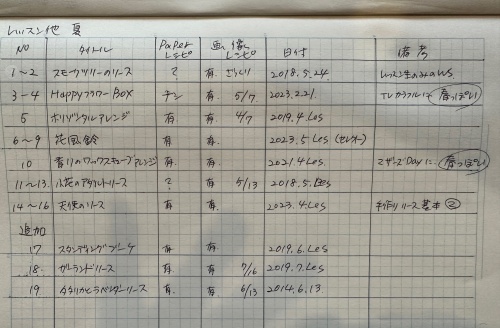 レッスン他 夏
NO タイトル Paper レシピ 画像 レシピ 日付 備考
1~2 スモークツリーのリース ? 有. 2018.5.24 レッスン生のみのWS
3-4 HappyフラワーBOX ナシ 5/7 2023.2.21. 春っぽい
5 ホリゾンタルアレンジ 有 4/7 2019.4.Les
6~9 花風鈴 有. 有. 2023.5 Les (セレクト)
10 香りのワックスキューブアレンジ 有 有. 2021.4.Les マザーズDayに 春っぽい
11~13. 小花のアンティークリース ? 5/13 2018.5.Les
14~16 天使のリース 有 有. 2023.4.Les 手作りリース基本②
追加
17 スタンディングブーケ 有 有 2019.6.Les
18. ガーランドリース 有. 7/16 2019.7.Les
19 リース 有. 6/13 2014.6.13